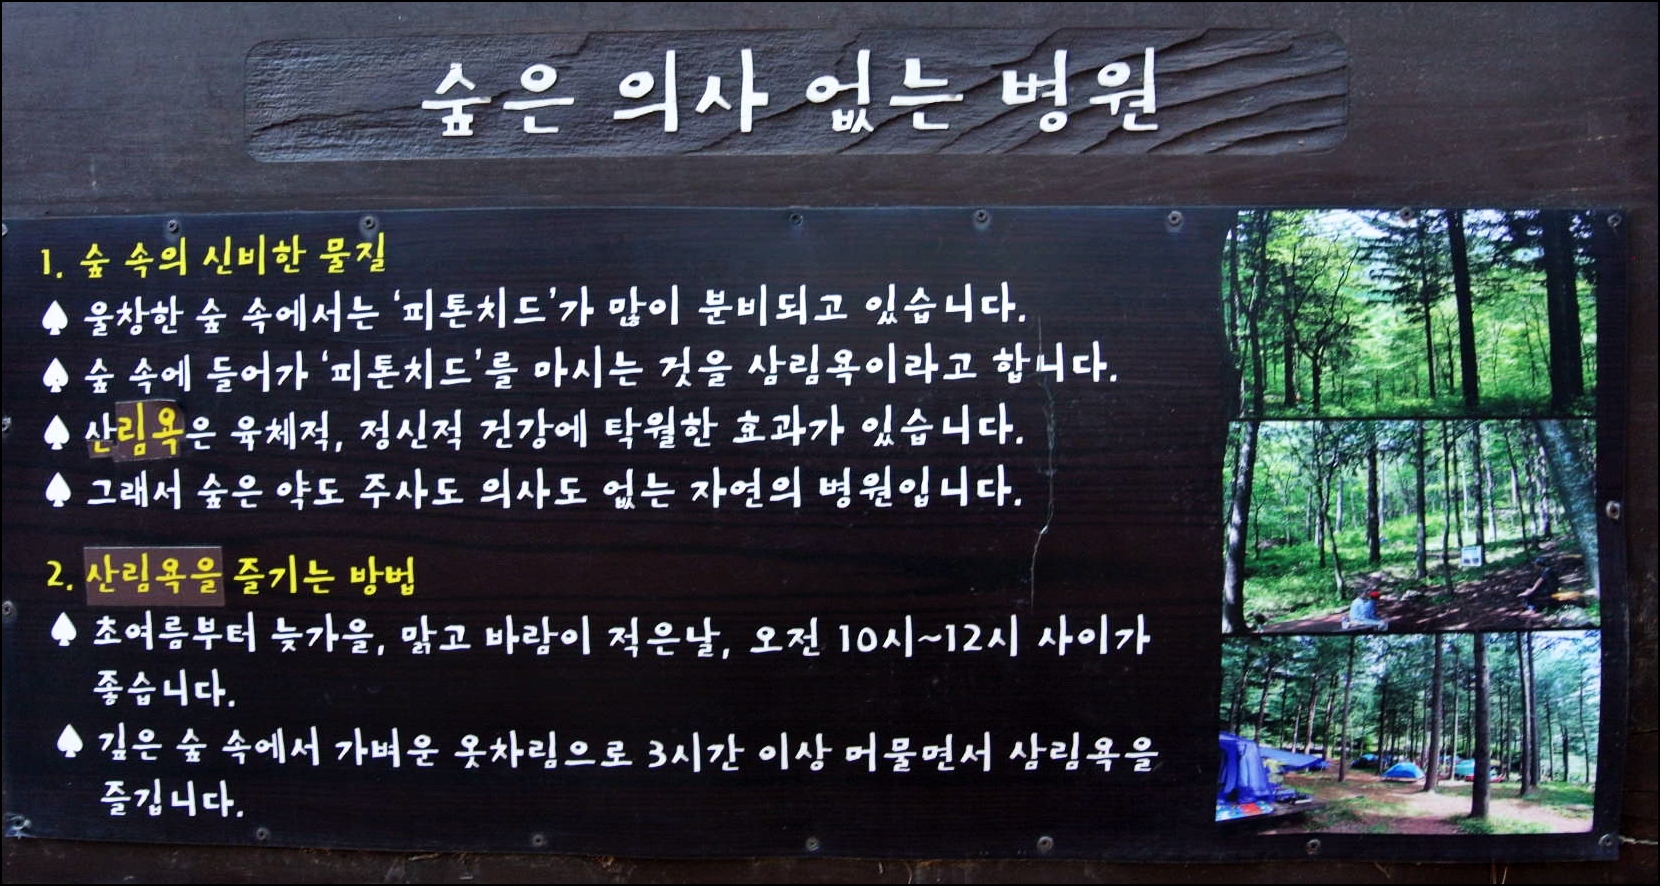 숲은 의사 없는 병원
1. 숲 속의 신비한 물질
♠ 울창한 숲 속에서는 '피톤치드'가 많이 분비되고 있습니다.
♠ 숲 속에 들어가 '피톤치드'를 마시는 것을 삼림욕이라고 합니다.
♠ 산림욕은 육체적, 정신적 건강에 탁월한 효과가 있습니다.
♠ 그래서 숲은 약도 주사도 의사도 없는 자연의 병원입니다.
2. 산림욕을 즐기는 방법
♠ 초여름부터 늦가을, 맑고 바람이 적은날, 오전 10시~12시 사이가
좋습니다.
♠ 깊은 숲 속에서 가벼운 옷차림으로 3시간 이상 머물면서 삼림욕을
즐깁니다.